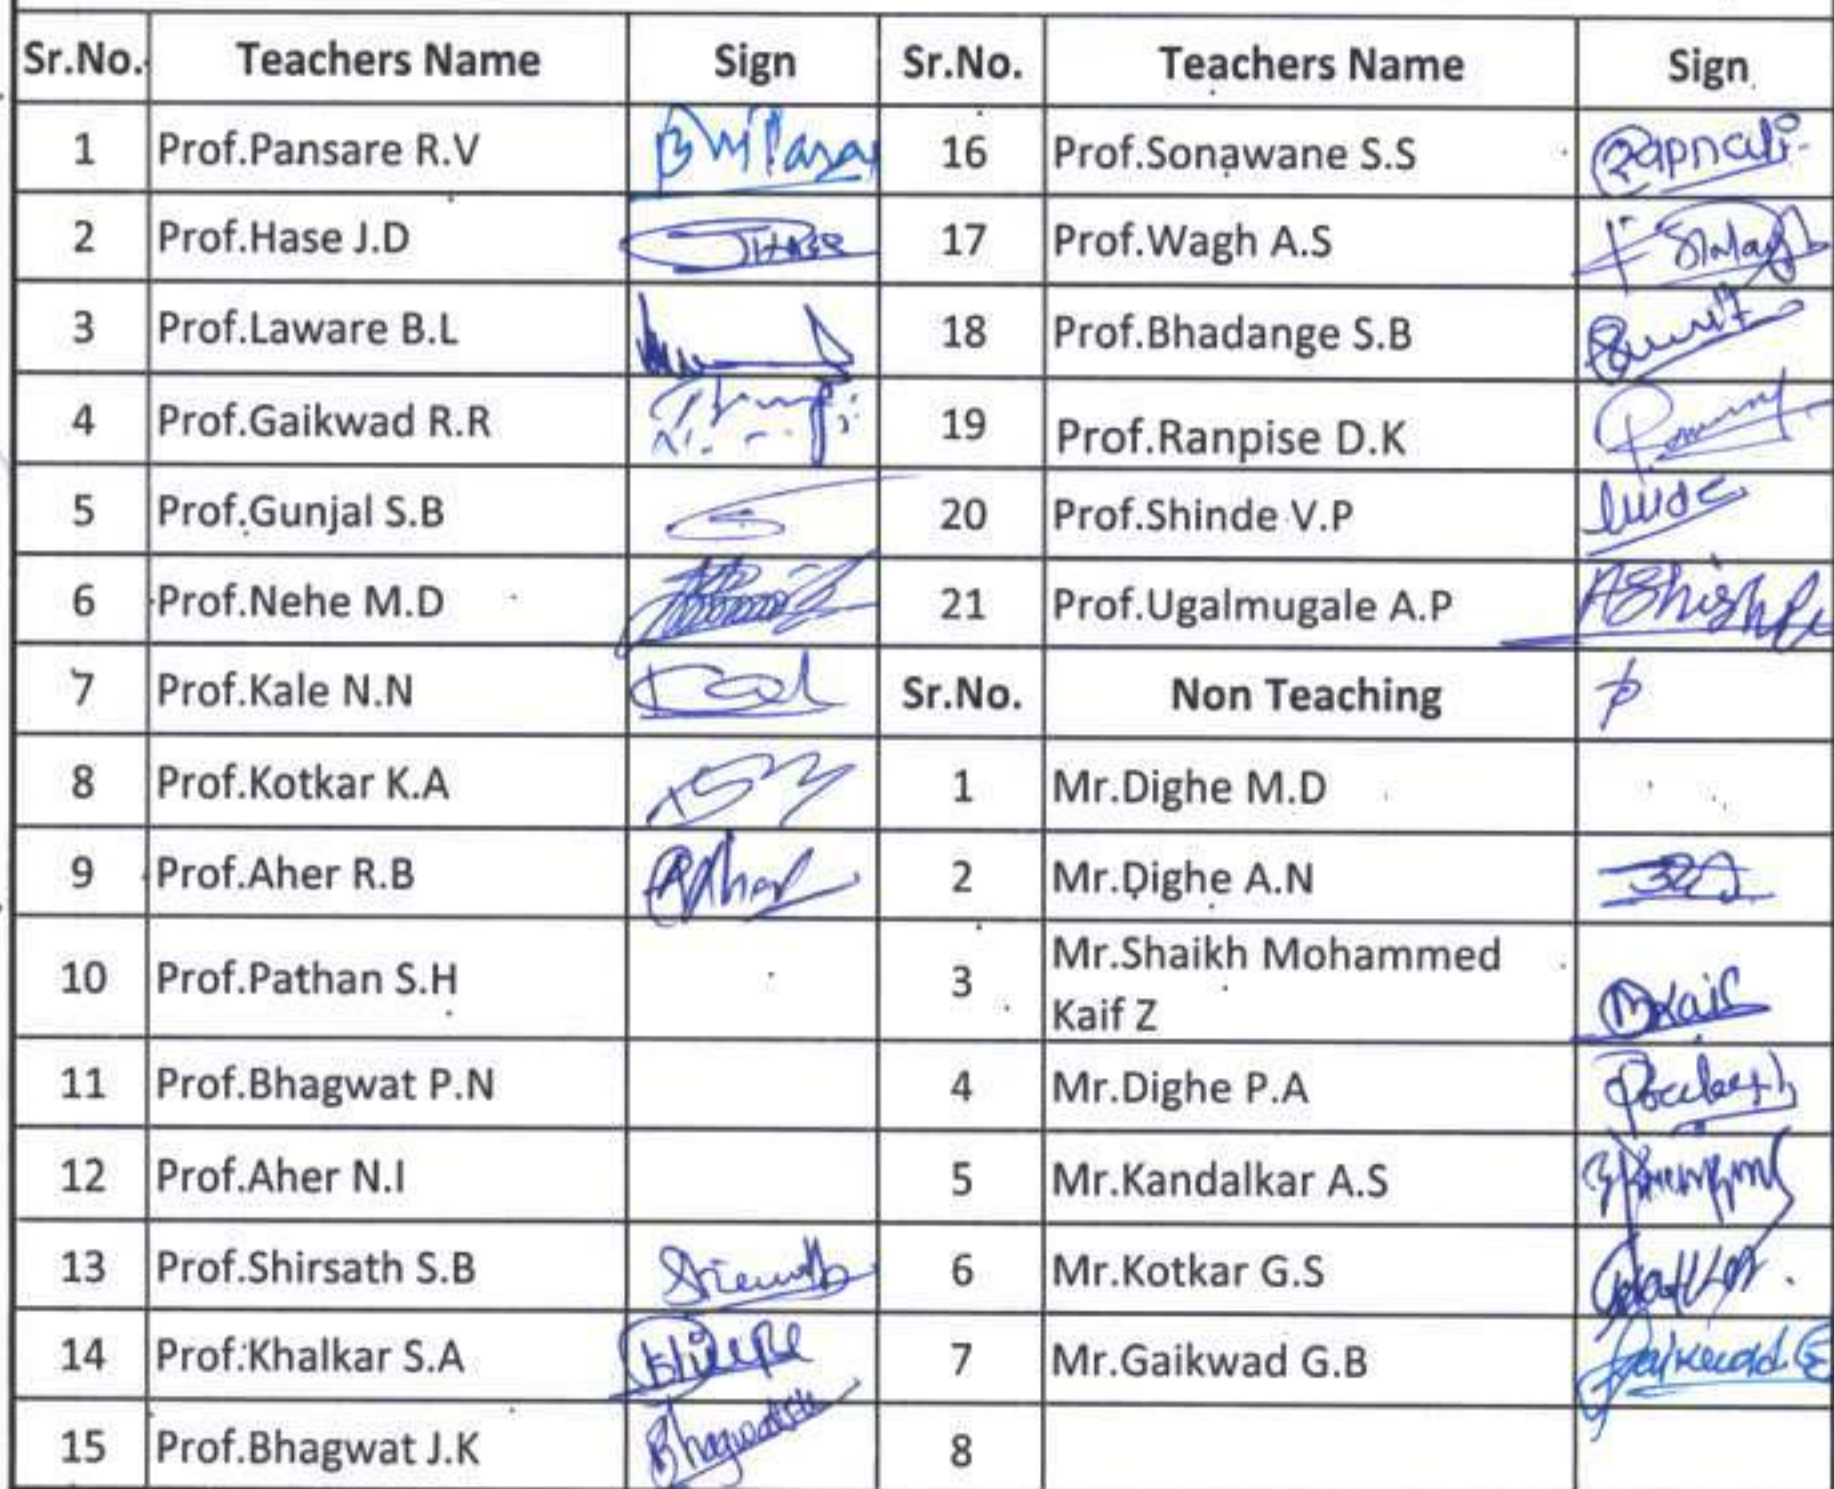 Sr.No. Teachers Name Sign Sr.No. Teachers Name Sign
1 Prof.Pansare R.V 16 Prof.Sonawane S.S
2 Prof.Hase J.D JHase 17 Prof.Wagh A.S
3 Prof.Laware B.L 18 Prof.Bhadange S.B
4 Prof.Gaikwad R.R 19 Prof.Ranpise D.K
5 Prof.Gunjal S.B 20 Prof.Shinde V.P
6 Prof.Nehe M.D 21 Prof.Ugalmugale A.P
7 Prof.Kale N.N Sr.No. Non Teaching
8 Prof.Kotkar K.A 1 Mr.Dighe M.D
9 Prof.Aher R.B 2 Mr.Dighe A.N
10 Prof.Pathan S.H 3 Mr.Shaikh Mohammed
Kaif Z
11 Prof.Bhagwat P.N 4 Mr.Dighe P.A
12 Prof.Aher N.I 5 Mr.Kandalkar A.S
13 Prof.Shirsath S.B 6 Mr.Kotkar G.S
14 Prof.Khalkar S.A 7 Mr.Gaikwad G.B
15 Prof.Bhagwat J.K 8